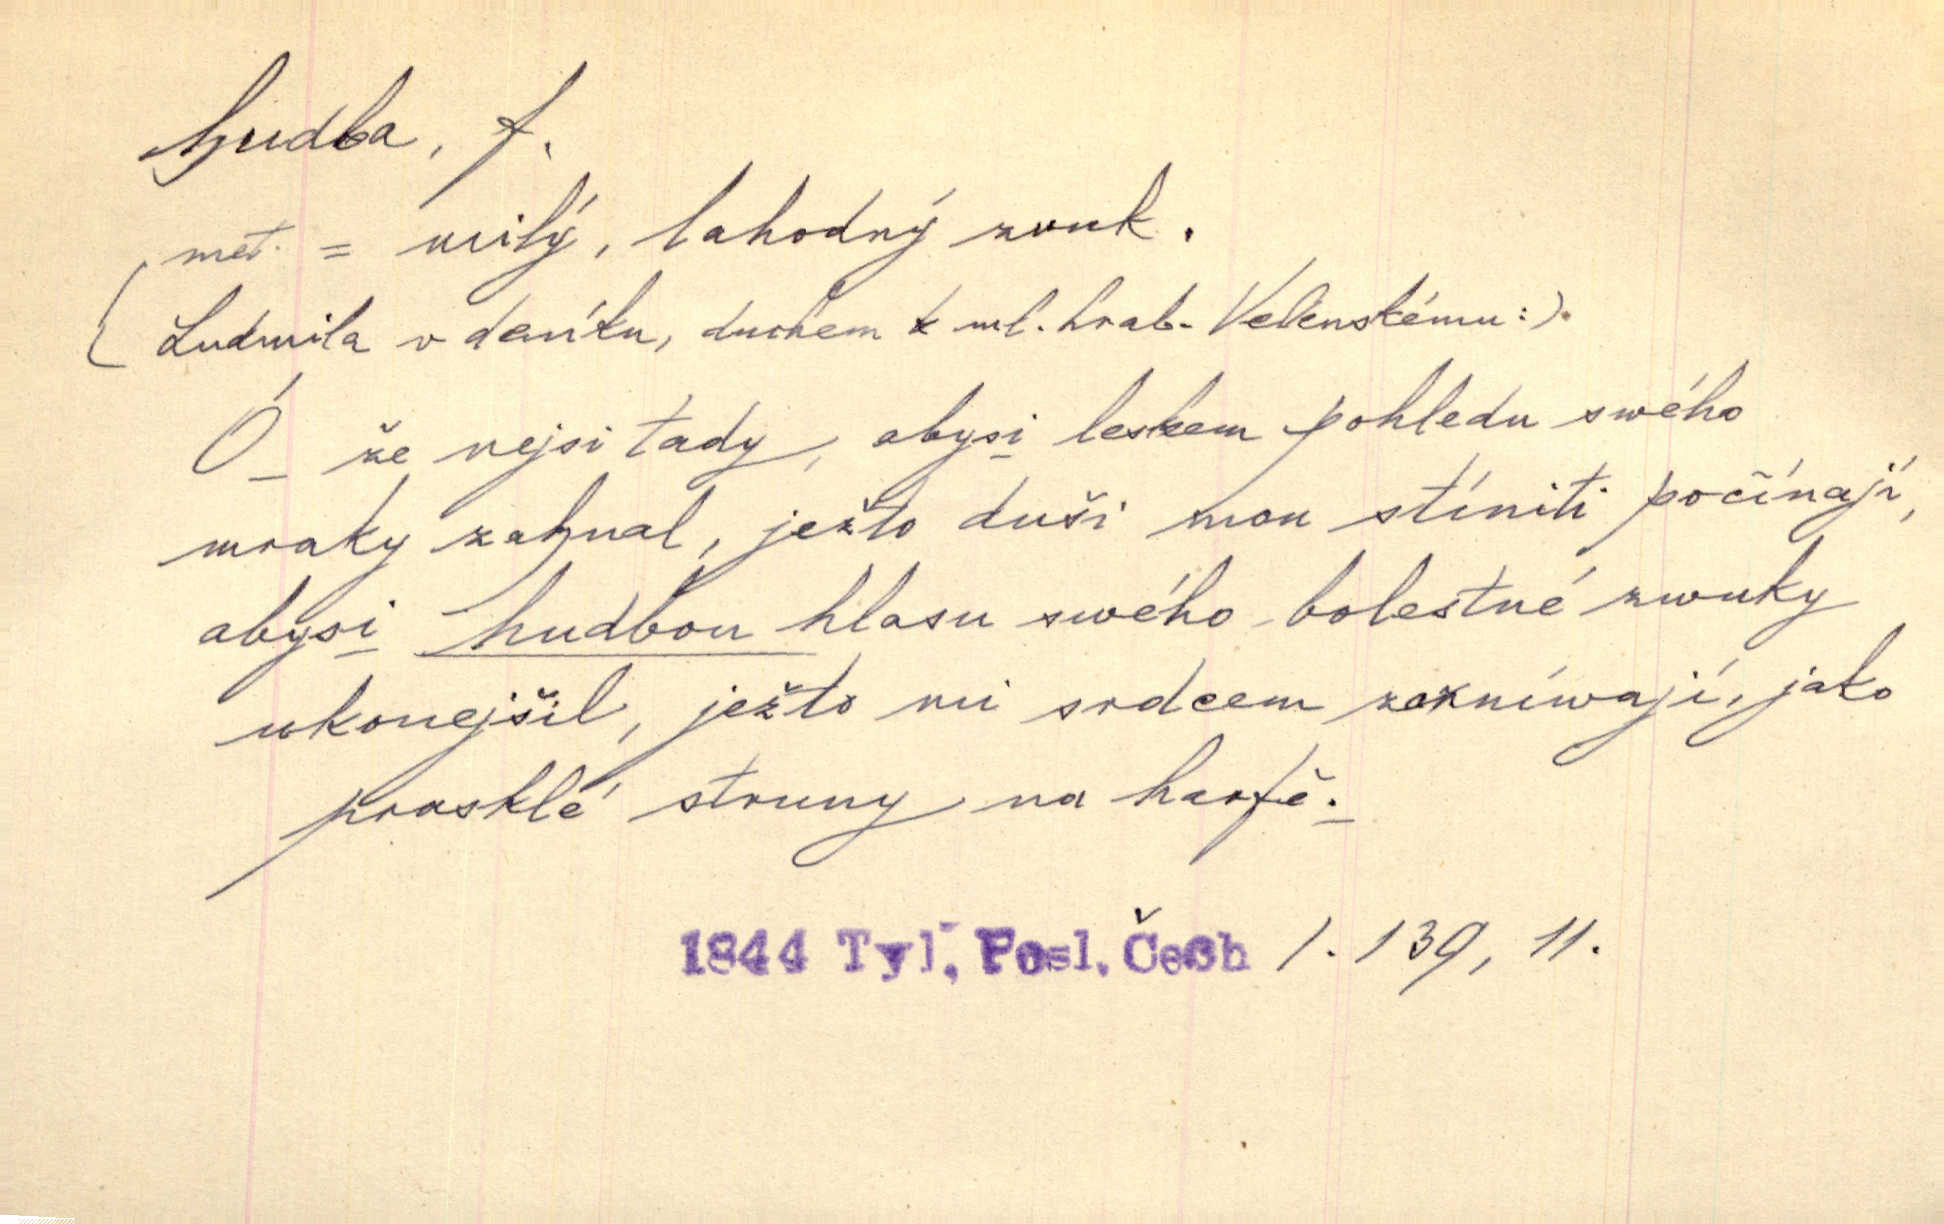 hudba, f.
met. = milý, lahodný zvuk.
(Ludmila v deníku, duchem k ml. hrab. Velenskému:).
Ó že nejsi tady, abysi leskem pohledu swého
mraky zahnal, ježto duši mou stíniti počínají,
abysi hudbou hlasu swého bolestné zwuky
ukonejšil, ježto mi srdcem zaznívwají, jako
prasklé struny na harfě.
1844 Tyl, Posl. Čech 1. 139, 11.